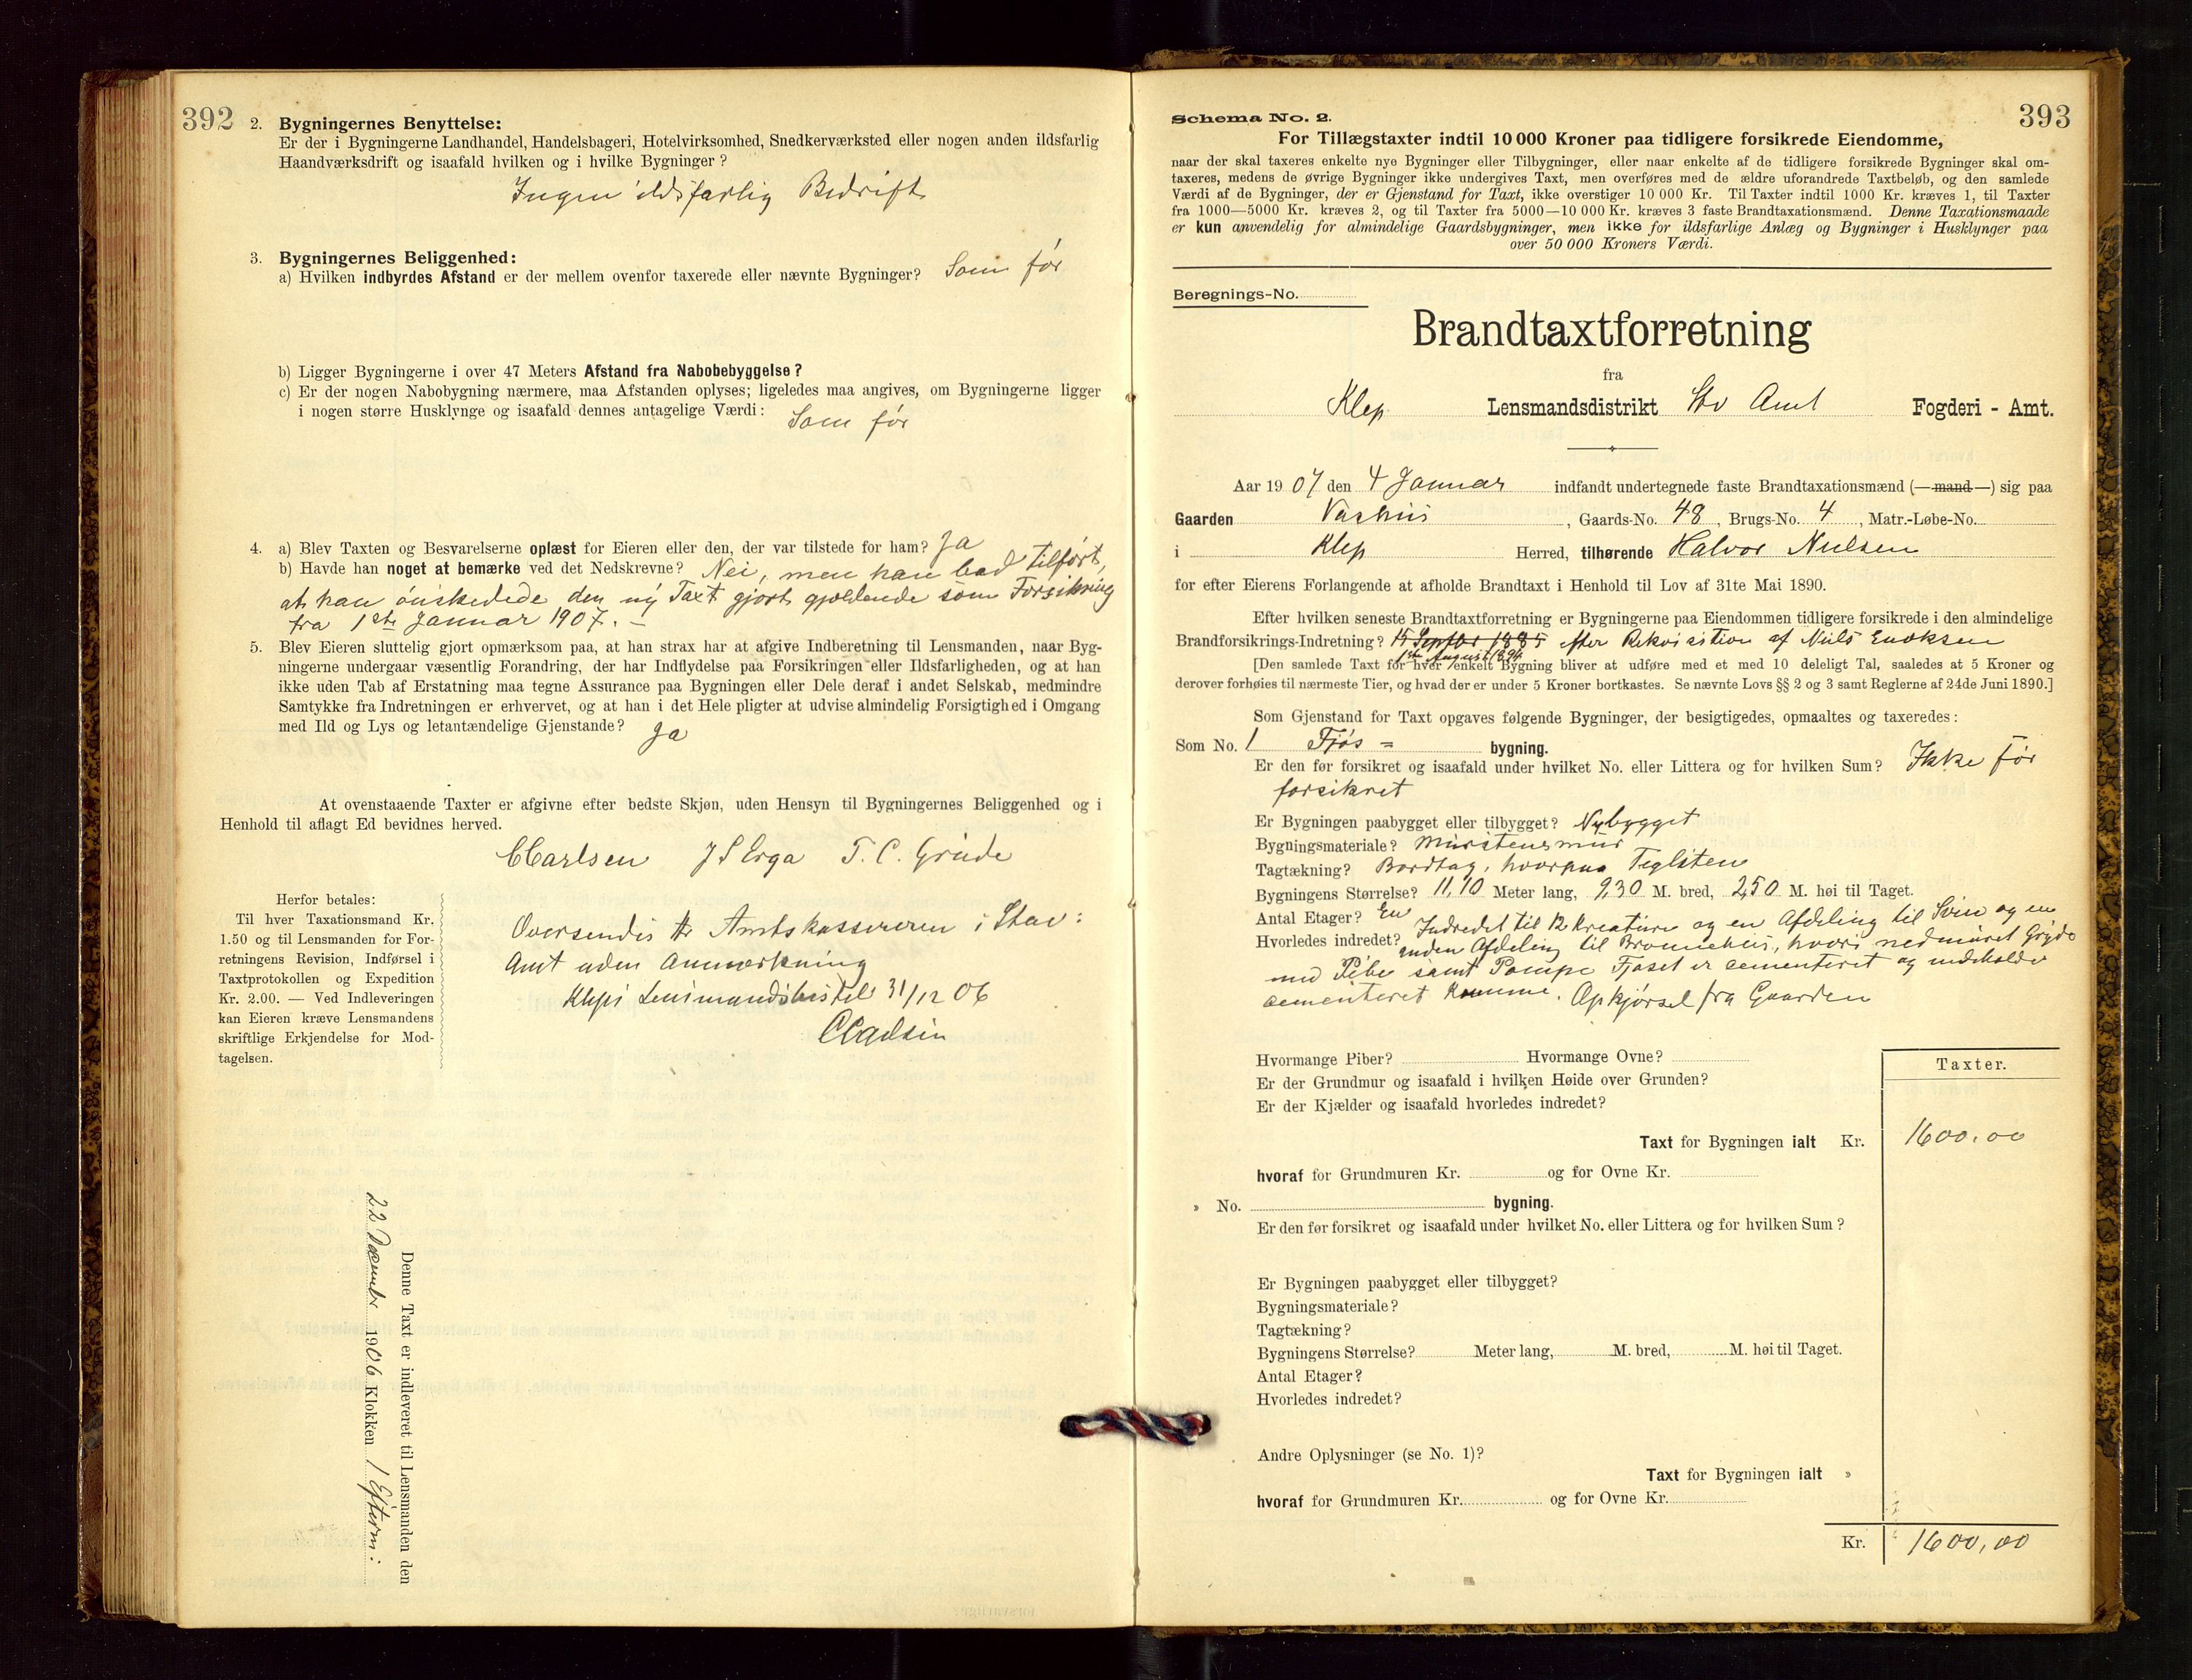 392
2. Bygningernes Benyttelse:
Er der i Bygningerne Landhandel, Handelsbageri, Hotelvirksomhed, Snedkerværksted eller nogen anden ildsfarlig
Haandværksdrift og isaafald hvilken og i hvilke Bygninger?
Ingen ildsfarlig Bedrift
3. Bygningernes Beliggenhed:
a) Hvilken indbyrdes Afstand er der mellem ovenfor taxerede eller nævnte Bygninger? Som før
b) Ligger Bygningerne i over 47 Meters Afstand fra Nabobebyggelse?
c) Er der nogen Nabobygning nærmere, maa Afstanden oplyses; ligeledes maa angives, om Bygningerne ligger
i nogen større Husklynge og isaafald dennes antagelige Værdi: Som før
4. a) Blev Taxten og Besvarelserne oplæst for Eieren eller den, der var tilstede for ham? Ja
b) Havde han noget at bemærke ved det Nedskrevne? Nei, men han bad tilført,
at han ønskedede den ny Taxt gjort gjældende som Forsikring
fra 1ste Januar 1907. –
5. Blev Eieren sluttelig gjort opmærksom paa, at han strax har at afgive Indberetning til Lensmanden, naar Byg-
ningerne undergaar væsentlig Forandring, der har Indflydelse paa Forsikringen eller Ildsfarligheden, og at han
ikke uden Tab af Erstatning maa tegne Assurance paa Bygningen eller Dele deraf i andet Selskab, medmindre
Samtykke fra Indretningen er erhvervet, og at han i det Hele pligter at udvise almindelig Forsigtighed i Omgang
med Ild og Lys og letantændelige Gjenstande? Ja
At ovenstaaende Taxter er afgivne efter bedste Skjøn, uden Hensyn til Bygningernes Beliggenhed og i
Henhold til aflagt Ed bevidnes herved.
CCarlsen J S Erga T. C. Grude
Herfor betales:
Til hver Taxationsmand Kr.
1.50 og til Lensmanden for For-
retningens Revision, Indførsel i
Taxtprotokollen og Expedition
Kr. 2.00. — Ved Indleveringen
kan Eieren kræve Lensmandens
skriftlige Erkjendelse for Mod-
tagelsen.
Oversendes Hr Amtskassereren i Stav:
Amt uden Anmærkning
Klepps Lensmandsbestil 31/12 06
CCarlsen
Denne Taxt er indleveret til Lensmanden den
22 December 1906 Klokken 1 Efterm:
393
Schema No. 2.
For Tillægstaxter indtil 10 000 Kroner paa tidligere forsikrede Eiendomme,
naar der skal taxeres enkelte nye Bygninger eller Tilbygninger, eller naar enkelte af de tidligere forsikrede Bygninger skal om-
taxeres, medens de øvrige Bygninger ikke undergives Taxt, men overføres med de ældre uforandrede Taxtbeløb, og den samlede
Værdi af de Bygninger, der er Gjenstand for Taxt, ikke overstiger 10 000 Kr. Til Taxter indtil 1000 Kr. kræves 1, til Taxter
fra 1000—5000 Kr. kræves 2, og til Taxter fra 5000—10 000 Kr. kræves 3 faste Brandtaxationsmænd. Denne Taxationsmaade
er kun anvendelig for almindelige Gaardsbygninger, men ikke for ildsfarlige Anlæg og Bygninger i Husklynger paa
over 50 000 Kroners Værdi.
Beregnings-No.
Brandtaxtforretning
fra
Klep Lensmandsdistrikt Stv Amt Fogderi - Amt.
Aar 1907 den 4 Januar indfandt undertegnede faste Brandtaxationsmænd (—mand—) sig paa
Gaarden Vashus, Gaards-No. 48, Brugs-No. 4, Matr.-Løbe-No.
i Klep Herred, tilhørende Halvor Nielsen
for efter Eierens Forlangende at afholde Brandtaxt i Henhold til Lov af 31te Mai 1890.
Efter hvilken seneste Brandtaxtforretning er Bygningerne paa Eiendommen tidligere forsikrede i den almindelige
Brandforsikrings-Indretning? 15 Septbr 1885 efter Rekvisition af Niels Enoksen
1ste August 1894
[Den samlede Taxt for hver enkelt Bygning bliver at udføre med et med 10 deleligt Tal, saaledes at 5 Kroner og
derover forhøies til nærmeste Tier, og hvad der er under 5 Kroner bortkastes. Se nævnte Lovs §§ 2 og 3 samt Reglerne af 24de Juni 1890.]
Som Gjenstand for Taxt opgaves følgende Bygninger, der besigtigedes, opmaaltes og taxeredes:
Som No. 1 Fjøs = bygning.
Er den før forsikret og isaafald under hvilket No. eller Littera og for hvilken Sum? Ikke før
forsikret
Er Bygningen paabygget eller tilbygget? Nybygget
Bygningsmateriale? Murstensmur
Tagtækning? Bordtag, hvorpaa Teglsten
Bygningens Størrelse? 11,10 Meter lang, 9,30 M. bred, 2,50 M. høi til Taget.
Antal Etager? En
Hvorledes indredet? Indredet til 12 Kreature og en Afdeling til Svin og en
anden Afdeling til Brønnehus, hvori nedmuret Gryde
med Pibe samt Pompe Fjøset er cementeret og indeholder
cementeret Kumme. Opkjørsel fra Gaarden
Hvormange Piber? Hvormange Ovne?
Er der Grundmur og isaafald i hvilken Høide over Grunden?
Er der Kjælder og isaafald hvorledes indredet?
Taxter.
Taxt for Bygningen ialt Kr. 1600.00
hvoraf for Grundmuren Kr. og for Ovne Kr.
» No. bygning.
Er den før forsikret og isaafald under hvilket No. eller Littera og for hvilken Sum?
Er Bygningen paabygget eller tilbygget?
Bygningsmateriale?
Tagtækning?
Bygningens Størrelse? Meter lang, M. bred, M. høi til Taget.
Antal Etager?
Hvorledes indredet?
Andre Oplysninger (se No. 1)?
Taxt for Bygningen ialt »
hvoraf for Grundmuren Kr. og for Ovne Kr.
Kr. 1600,00